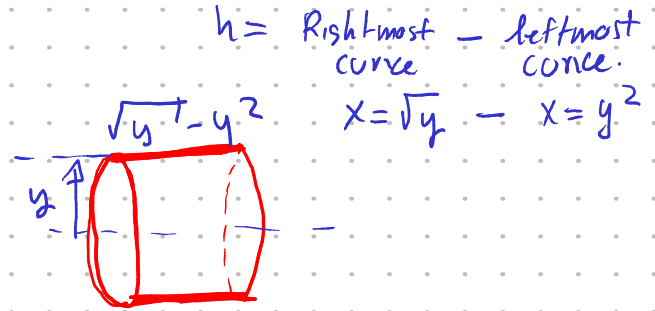 h = Rightmost curve – leftmost curve.
x = √y – x = y²
√y – y²
y